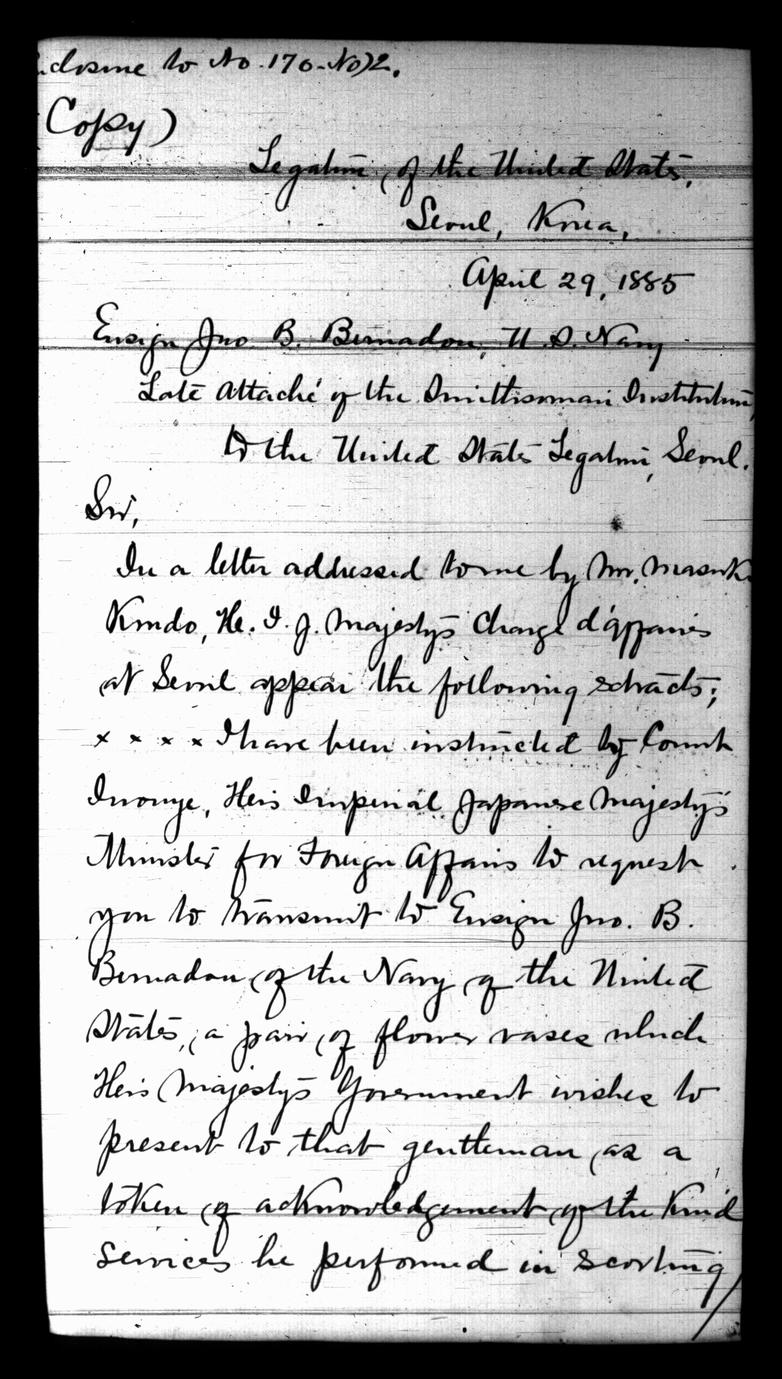 closure to No. 170. No. 2.
Copy)
Legation of the United States,
Seoul, Korea,
April 29, 1885
Ensign Jno B. Bernadou, U.S. Navy
Late Attaché of the Smithsonian Institution,
to the United States Legation, Seoul.
Sir,
In a letter addressed to me by Mr. Masuki
Kondo, H. I. J. Majesty's Chargé d'affaires
at Seoul appear the following extracts;
x x x x I have been instructed by Count
Inouye, His Imperial Japanese Majesty's
Minister for Foreign Affairs to request
you to transmit to Ensign Jno. B.
Bernadou, of the Navy of the United
States, a pair of flower vases which
His Majesty's Government wishes to
present to that gentleman as a
token of acknowledgement of the kind
services he performed in escorting